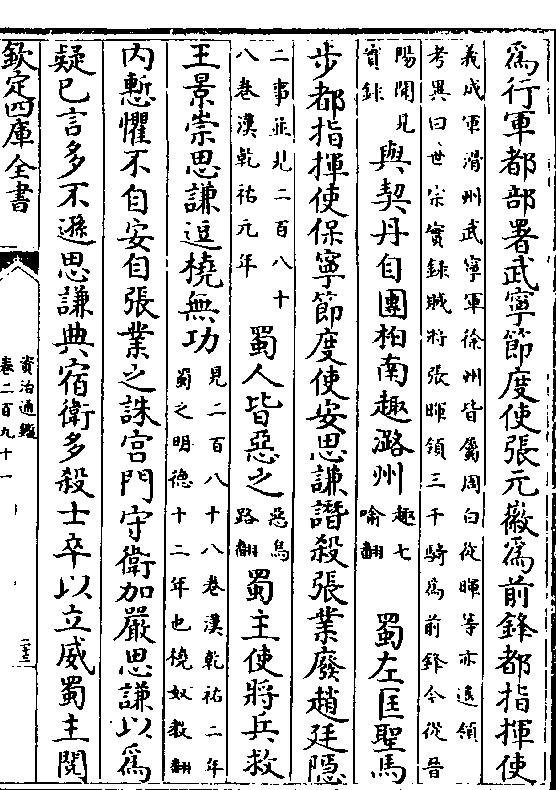 為行軍都部署武寧節度使張元徽為前鋒都指揮使
義成軍滑州武寧軍徐州皆屬周白從暉等亦遙領
考異曰世宗實録賊將張暉領三千騎為前鋒今從晉
陽聞見
實録
與契丹自團柏南趣潞州
趣七
喻翻
蜀左匡聖馬
步都指揮使保寧節度使安思謙譖殺張業廢趙廷隠
二事並見二百八十
八卷漢乾祐元年
蜀人皆惡之
惡烏
路翻
蜀主使將兵救
王景崇思謙逗橈無功
見二百八十八卷漢乾祐二年
蜀之明德十二年也橈奴教翻
内慙懼不自安自張業之誅宫門守衛加嚴思謙以為
疑已言多不遜思謙典宿衛多殺士卒以立威蜀主閱
欽定四庫全書
資治通鑑
卷二百九十一